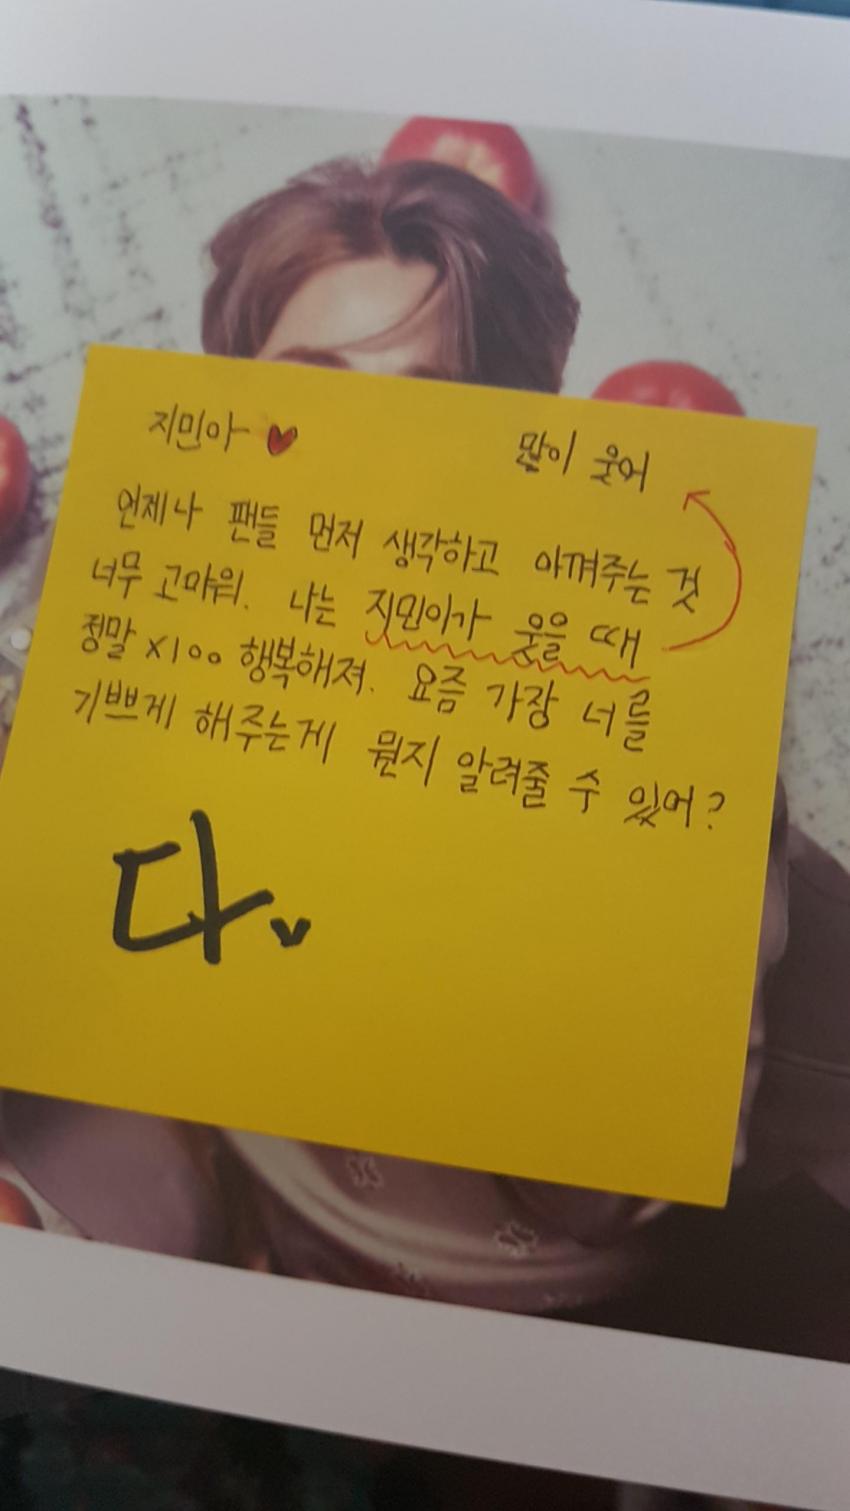 지민아 ♥
많이 웃어
언제나 팬들 먼저 생각하고 아껴주는 것
너무 고마워. 나는 지민이가 웃을 때
정말 x100 행복해져. 요즘 가장 너를
기쁘게 해주는게 뭔지 알려줄 수 있어?
다.♥